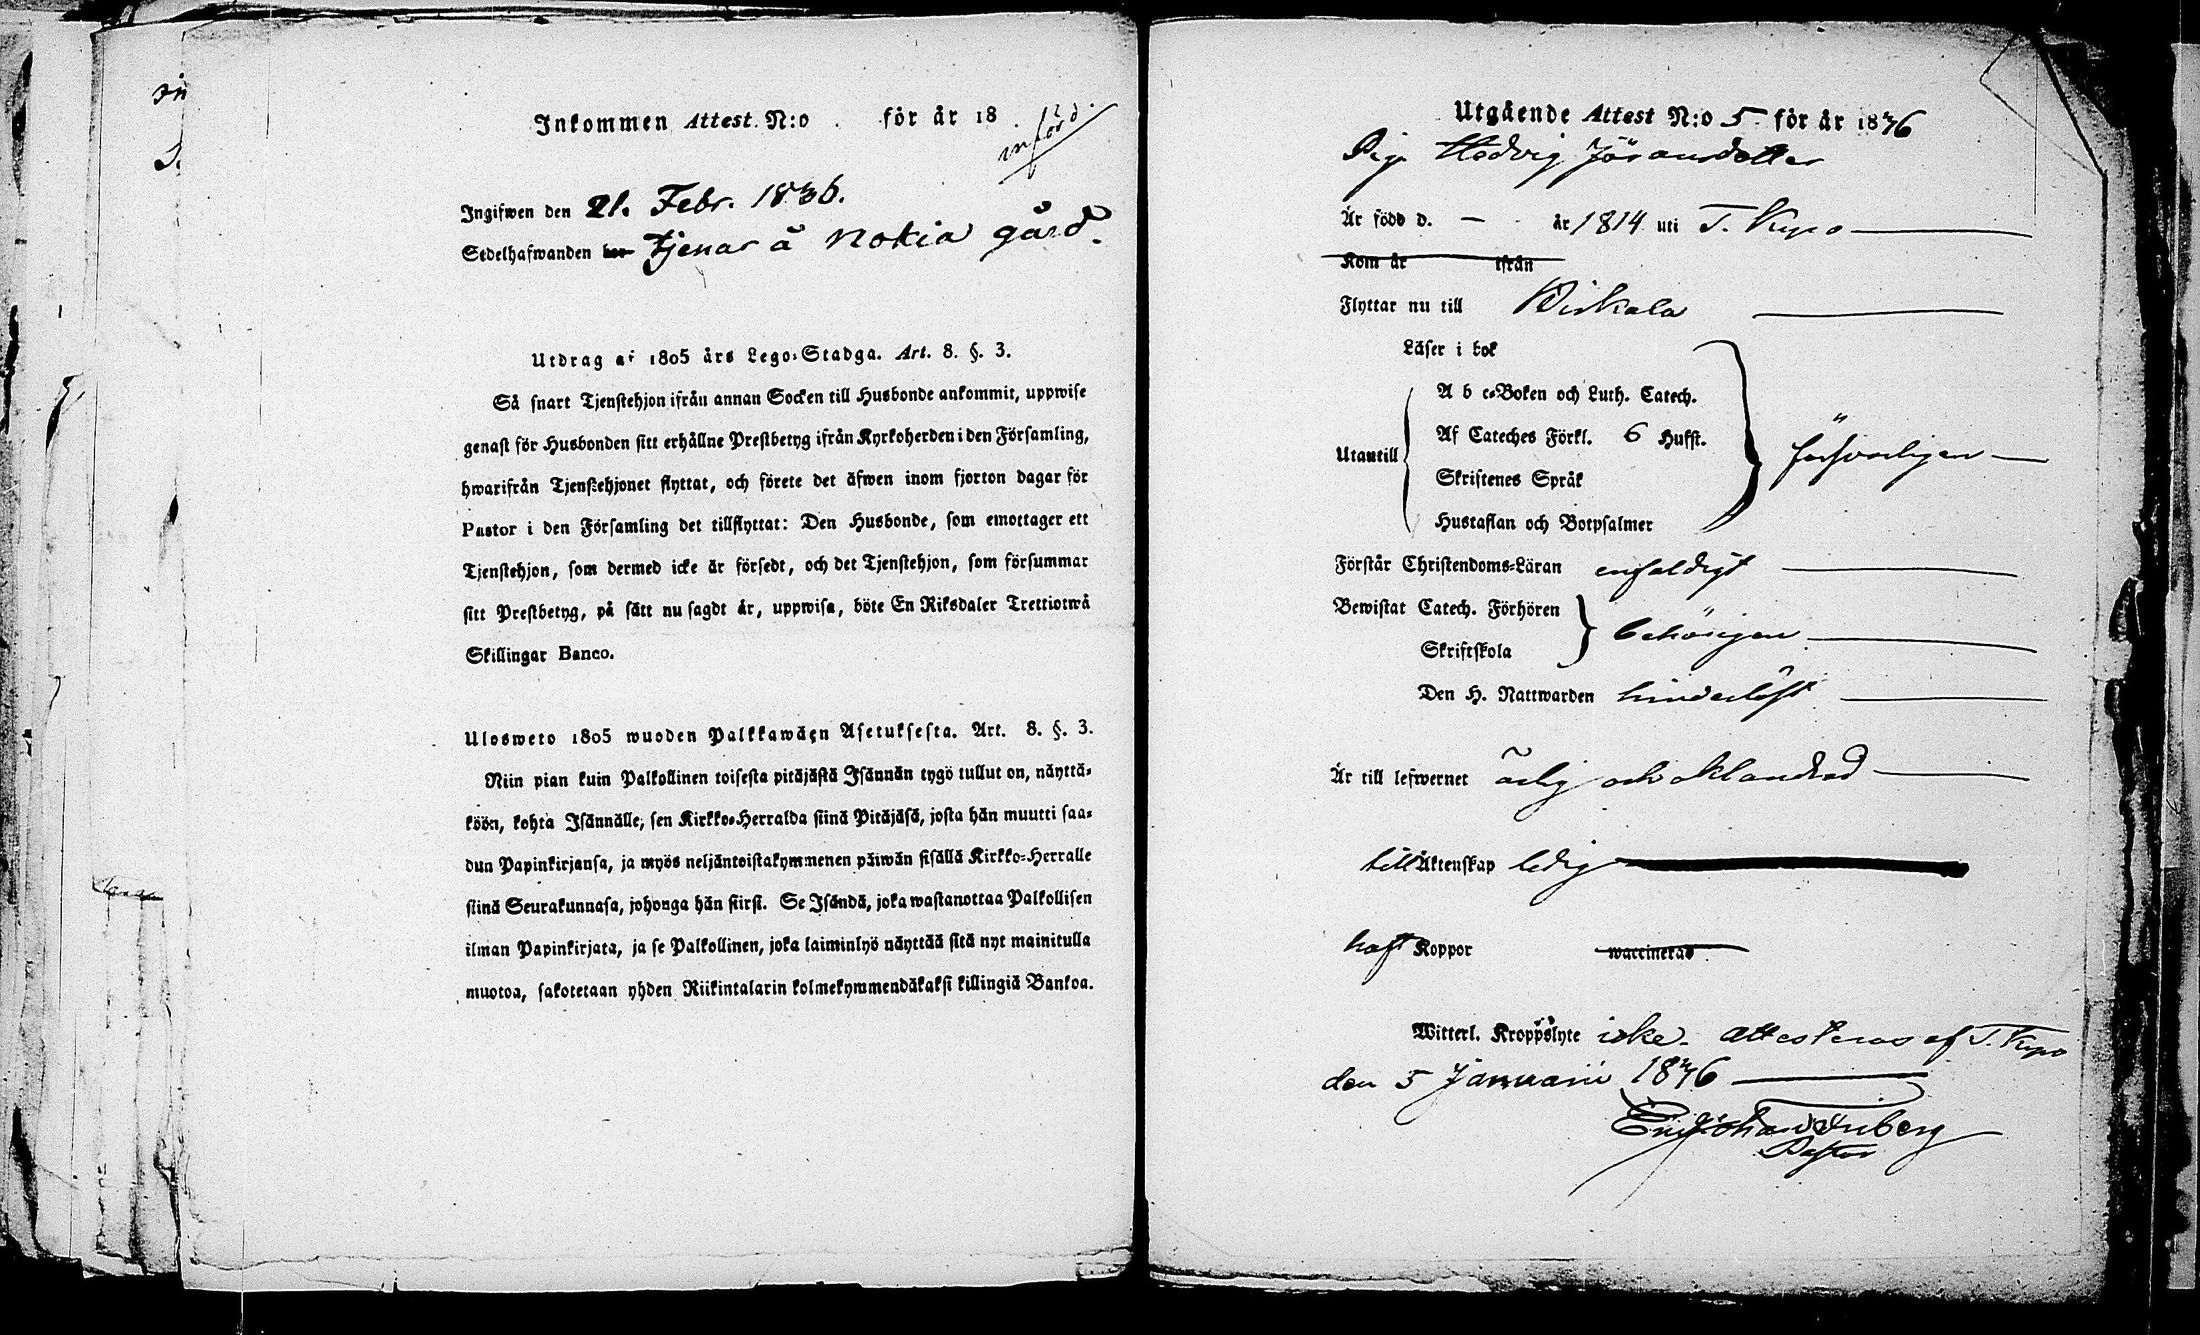 Inkommen Attest N:o . för år 18 .
införd.
Ingifwen den 21. Febr. 1836.
Sedelhafwanden bor tjenar å Nokia gård.
Utdrag af 1805 års Lego-Stadga. Art. 8. §. 3.
Så snart Tjenstehjon ifrån annan Socken till Husbonde ankommit, uppwise
genast för Husbonden sitt erhållne Prestbetyg ifrån Kyrkoherden i den Församling,
hwarifrån Tjenstehjonet flyttat, och förete det äfwen inom fjorton dagar för
Pastor i den Församling det tillflyttat: Den Husbonde, som emottager ett
Tjenstehjon, som dermed icke är försedt, och det Tjenstehjon, som försummar
sitt Prestbetyg, på sätt nu sagdt är, uppwisa, böte En Riksdaler Trettiotwå
Skillingar Banco.
Ulosweto 1805 wuoden Palkkawäen Asetuksesta. Art. 8. §. 3.
Niin pian kuin Palkollinen toisesta pitäjästä Isännän tygö tullut on, näyttä-
köön, kohta Isännälle, sen Kirkko-Herralda siinä Pitäjäsä, josta hän muutti saa-
dun Papinkirjansa, ja myös neljäntoistakymmenen päiwän sisällä Kirkko-Herralle
siinä Seurakunnasa, johonga hän siirsi. Se Isändä, joka wastanottaa Palkollisen
ilman Papinkirjata, ja se Palkollinen, joka laiminlyö näyttää sitä nyt mainitulla
muotoa, sakotetaan yhden Riikintalarin kolmekymmendäkaksi killingiä Bankoa.
Utgående Attest N:o 5 för år 1836
Pig. Hedvig Jöransdotter
Är född d. – år 1814 uti T. Kyro
Kom år ifrån
Flyttar nu till Birkala
Läser i bok
Utantill
A b c-Boken och Luth. Catech.
Af Cateches Förkl. 6 Hufst.
Skriftenes Språk
Hustaflan och Botpsalmer
försvarligen
Förstår Christendoms-Läran enfaldigt
Bewistat Catech. Förhören
Skriftskola
behörigen
Den H. Nattwarden hinderlöst
Är till lefwernet ärlig och oklandrad
till Äktenskap ledig
haft Koppor waccinerad
Witterl. Kroppslyte icke. Attesteras af T. Kyro
den 5 Januarii 1836
Eric Johan Friberg
Pastor